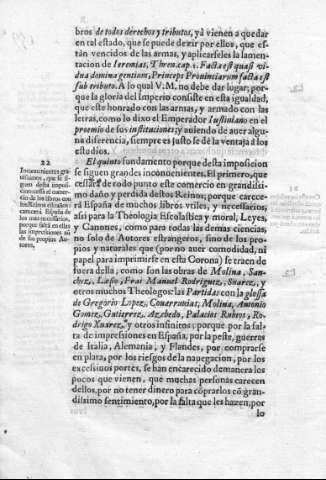 bros de todos derechos y tributos, yà vienen a quedar
en tal estado, que se puede dezir por ellos, que es-
tàn vencidos de las armas, y aplicarseles la lamen-
tacion de Ieremias, Thren. cap. 1. Facta est quasi vi-
dua domina gentium, Princeps Prouinciarum facta est
sub tributo. A lo qual V. M. no debe dar lugar; por-
que la gloria del Imperio consiste en esta igualdad,
que estè honrado con las armas, y armado con las
letras, como lo dixo el Emperador Iustiniano en el
proemio de sus instituciones; y auiendo de auer algu-
na diferencia, siempre es justo se dè la ventaja à los
estudios.
22
Inconuenientes gra-
uissimos, que se si-
guen desta imposi-
cion cessa el comer-
cio de los libros con
los Reinos estraños:
carecerà España de
los mas necessarios,
porque faltà en ellas
las impressiones aũ
de los propios Au-
tores.
El quinto fundamento porque desta imposicion
se siguen grandes inconuenientes. El primero, que
cessarà de todo punto este comercio en grandissi-
mo daño y perdida destos Reinos; porque carece-
rà España de muchos libros vtiles, y necessarios,
assi para la Theologia Escolastica y moral, Leyes,
y Canones, como para todas las demas ciencias,
no solo de Autores estrangeros, sino de los pro-
pios y naturales que (por no auer comodidad, ni
papel para imprimirse en esta Corona) se traen de
fuera della, como son las obras de Molina, San-
chez, Laso, Frai Manuel Rodriguez, Suarez, y
otros muchos Theologos: las Partidas con la glossa
de Gregorio Lopez, Couarruuias, Molina, Antonio
Gomez, Gutierrez, Azebedo, Palacios Rubios, Ro-
drigo Xuarez, y otros infinitos; porque por la fal-
ta de impressiones en España, por la peste, guerras
de Italia, Alemania, y Flandes, por comprarse
en plata, por los riesgos de la nauegacion, por los
excessiuos portes, se han encarecido demanera los
pocos que vienen, que muchas personas carecen
dellos, por no tener dinero para cõprarlos cõ gran-
dissimo sentimiento, por la falta que les hazen, por
lo